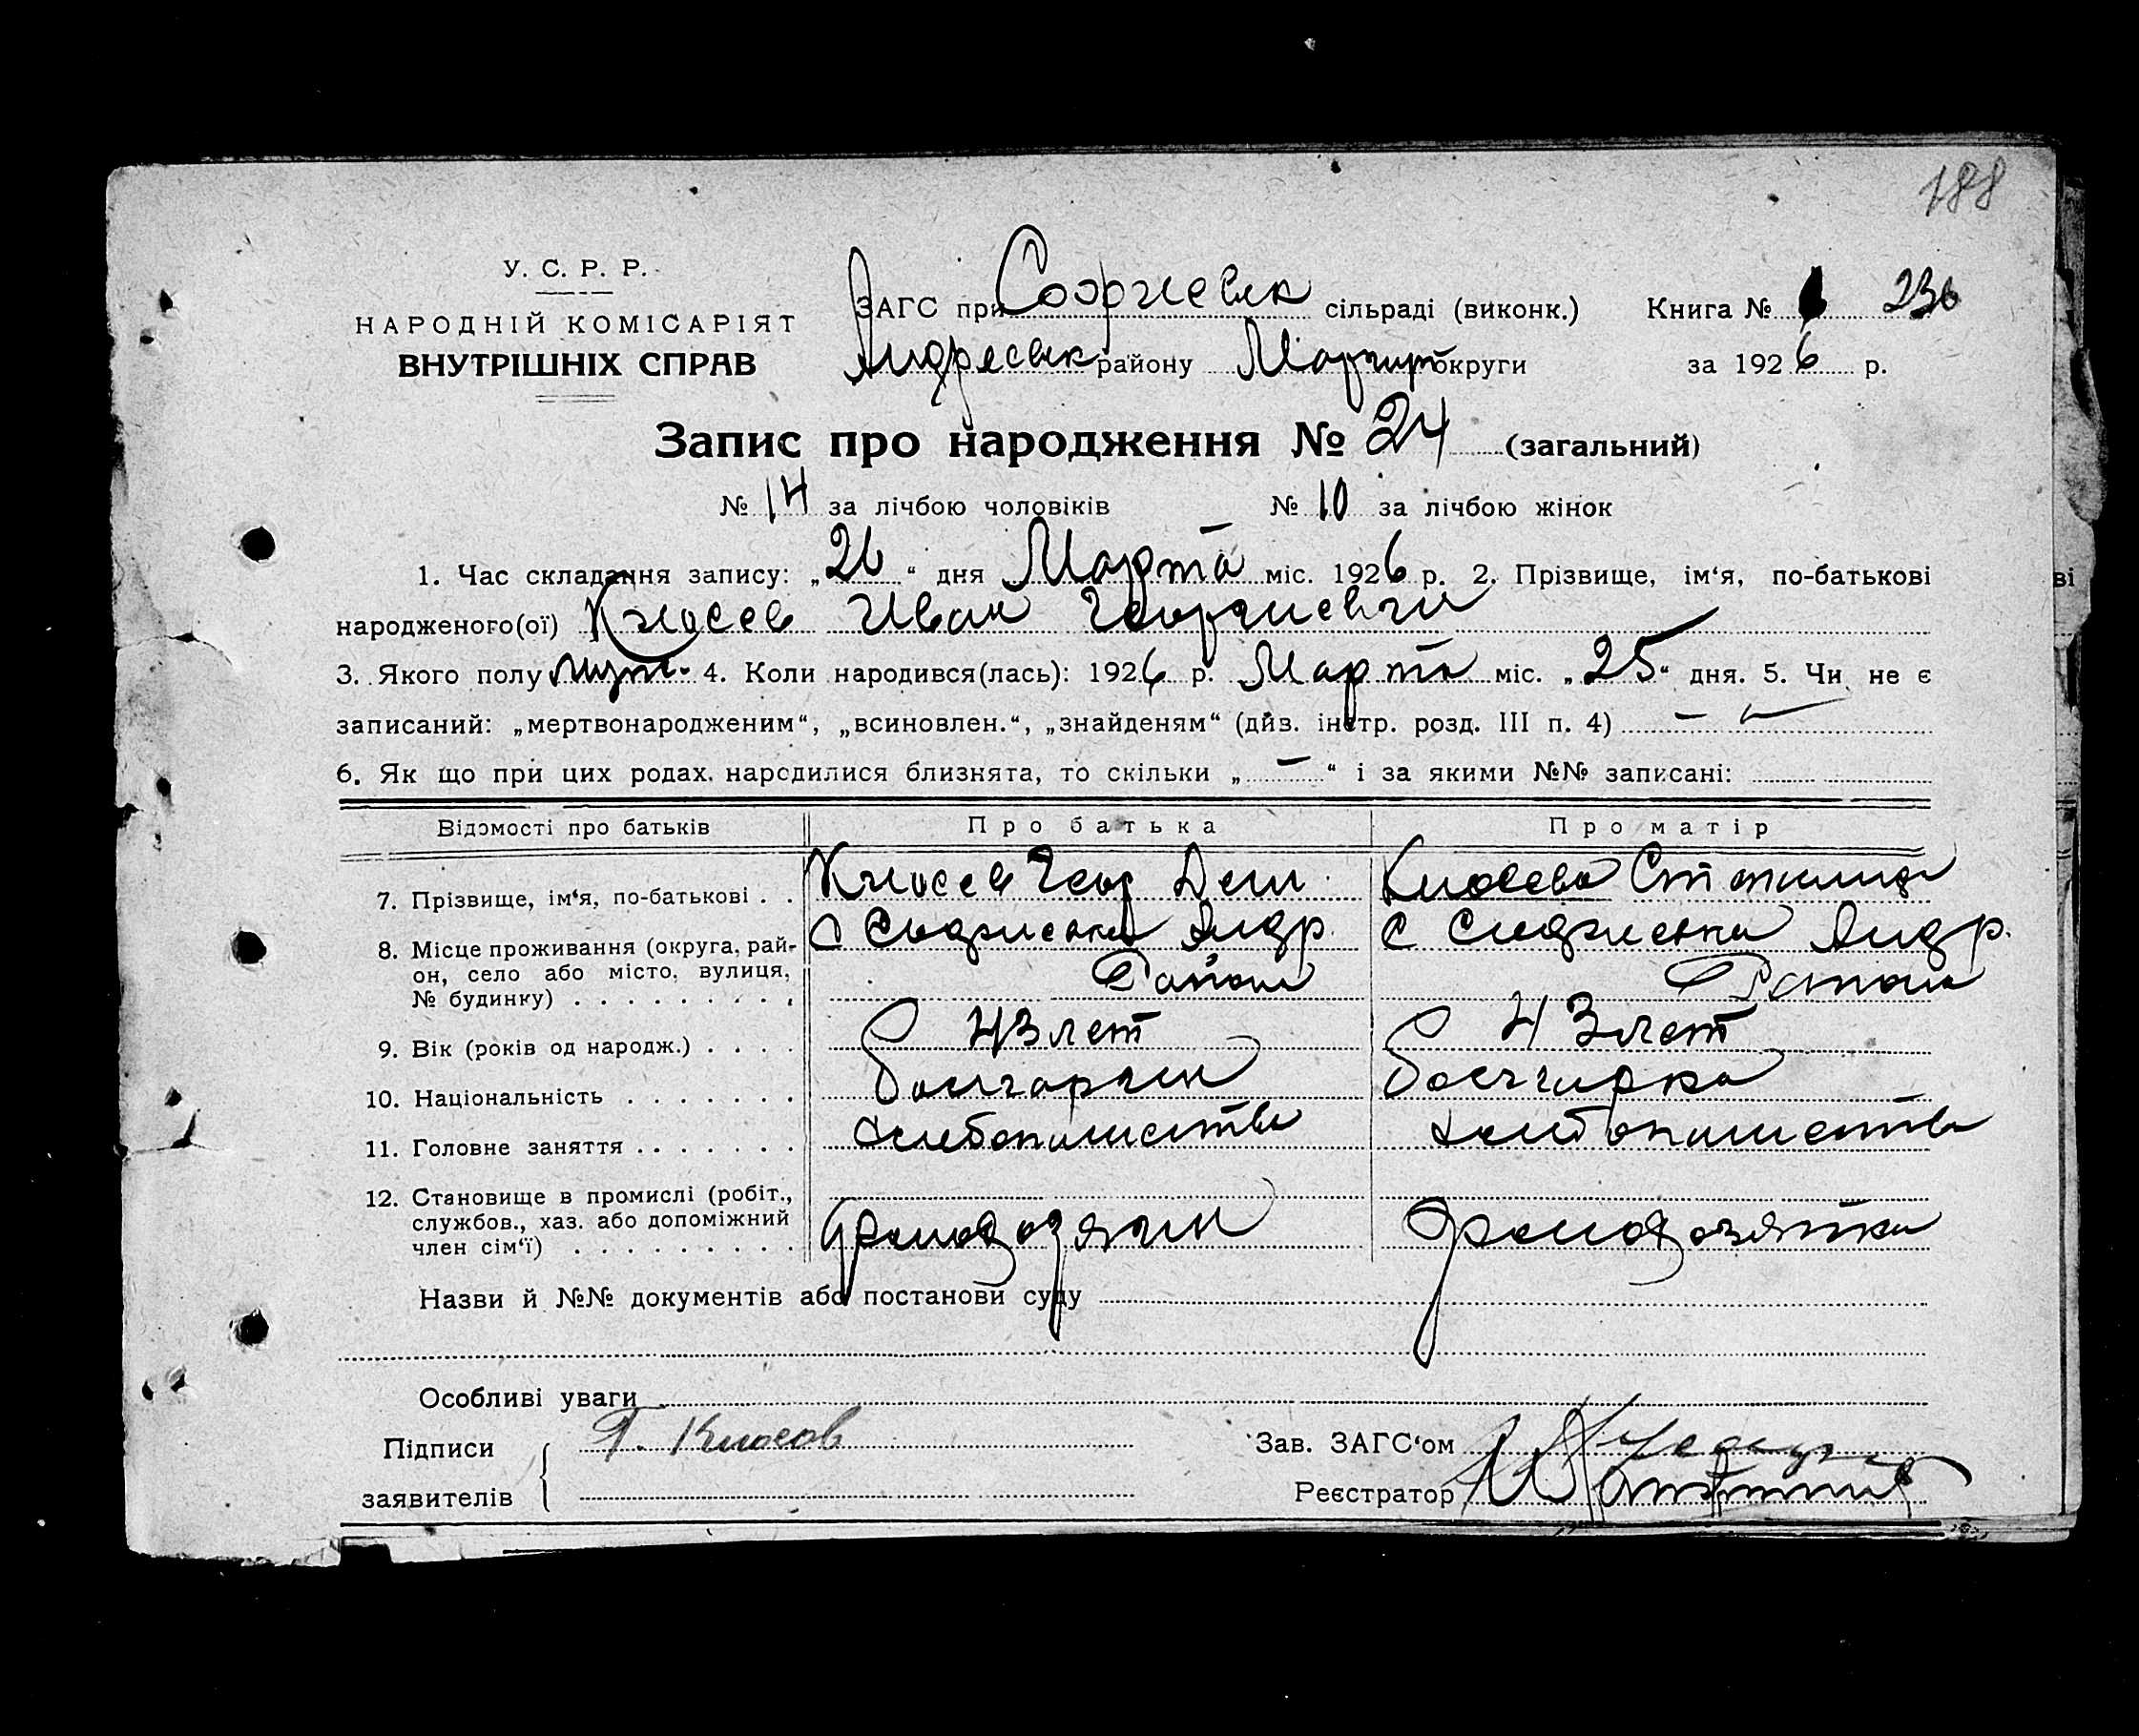 188
У. С. Р. Р.
НАРОДНІЙ КОМІСАРІЯТ
ВНУТРІШНІХ СПРАВ
ЗАГС при сільраді (виконк.) Книга № 236
району округи за 1926 р.
Запис про народження № 24 (загальний)
№ 14 за лічбою чоловіків № 10 за лічбою жінок
1. Час складання запису: „26“ дня Марта міс. 1926 р. 2. Прізвище, ім‘я, по-батькові
народженого(ої) Кюсев Иван
3. Якого полу муж. 4. Коли народився(лась): 1926 р. Марта міс. „25“ дня. 5. Чи не є
записаний: „мертвонародженим“, „всиновлен.“, „знайденям“ (див. інстр. розд. III п. 4) —
6. Як що при цих родах народилися близнята, то скільки „—“ і за якими №№ записані:
Відомості про батьків Про батька Про матір
7. Прізвище, ім‘я, по-батькові . . Кюсев Геор Кюсева
8. Місце проживання (округа, рай- с Андр. с Андр.
он, село або місто, вулиця, Район Район
№ будинку) . . . . . . . . . .
9. Вік (років од народж.) . . . . 43 лет 43 лет
10. Національність . . . . . . . болгарин болгарка
11. Головне заняття . . . . . . .
12. Становище в промислі (робіт.,
службов., хаз. або допоміжний домохозяин домохозяйка
член сім‘ї) . . . . . . . . .
Назви й №№ документів або постанови суду
Особливі уваги
Підписи Г. Кюсов Зав. ЗАГС‘ом
заявителів Реєстратор